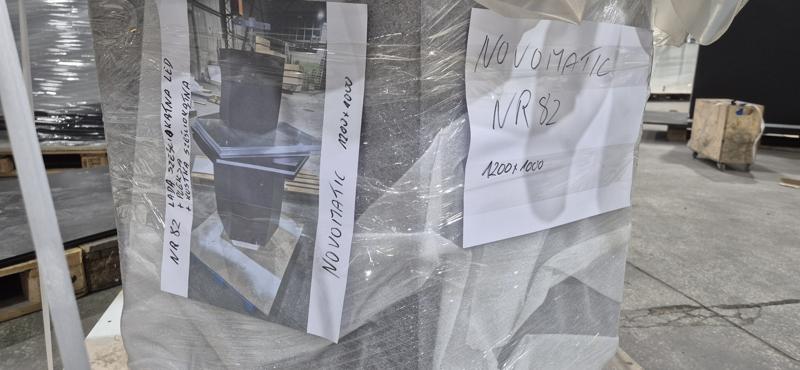 NR 82 LADA SZEŚCIOKĄTNA LED
+ PLEKSA
+ KOSTKA SZEŚCIOKĄTNA
NOVOMATIC 1200x1000
NOVOMATIC
NR 82
1200x1000